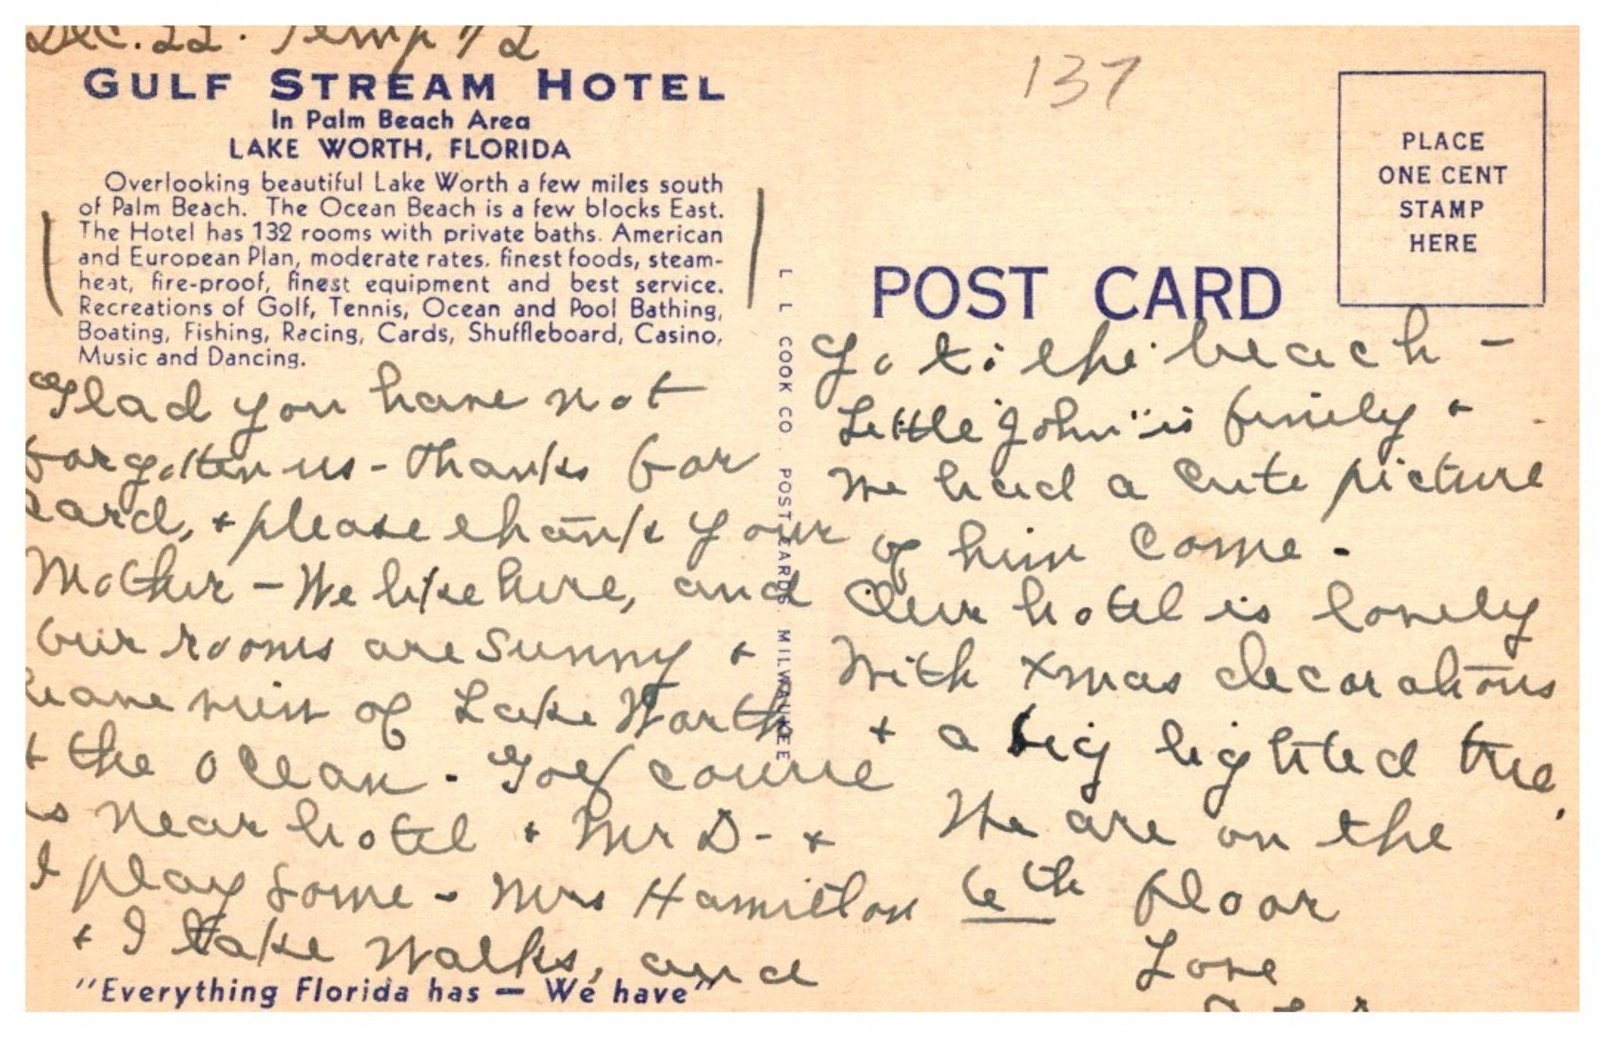 Dec. 22. Temp 72
GULF STREAM HOTEL
In Palm Beach Area
LAKE WORTH, FLORIDA
Overlooking beautiful Lake Worth a few miles south
of Palm Beach. The Ocean Beach is a few blocks East.
The Hotel has 132 rooms with private baths. American
and European Plan, moderate rates. finest foods, steam-
heat, fire-proof, finest equipment and best service.
Recreations of Golf, Tennis, Ocean and Pool Bathing,
Boating, Fishing, Racing, Cards, Shuffleboard, Casino,
Music and Dancing.
Glad you have not
forgotten us - Thanks for
card, + please thank your
Mother - We like here, and
our rooms are sunny +
have view of Lake Worth
+ the ocean. Golf course
is near hotel + Mr D - +
I play some - Mrs Hamilton
+ I take walks, and
"Everything Florida has — We have"
L L COOK CO. POST CARDS MILWAUKEE
137
PLACE
ONE CENT
STAMP
HERE
POST CARD
Go to the beach -
Little "John" is +
We had a cute picture
of him come.
Our hotel is lovely
With Xmas decorations
+ a big lighted tree.
We are on the
6th floor
Love